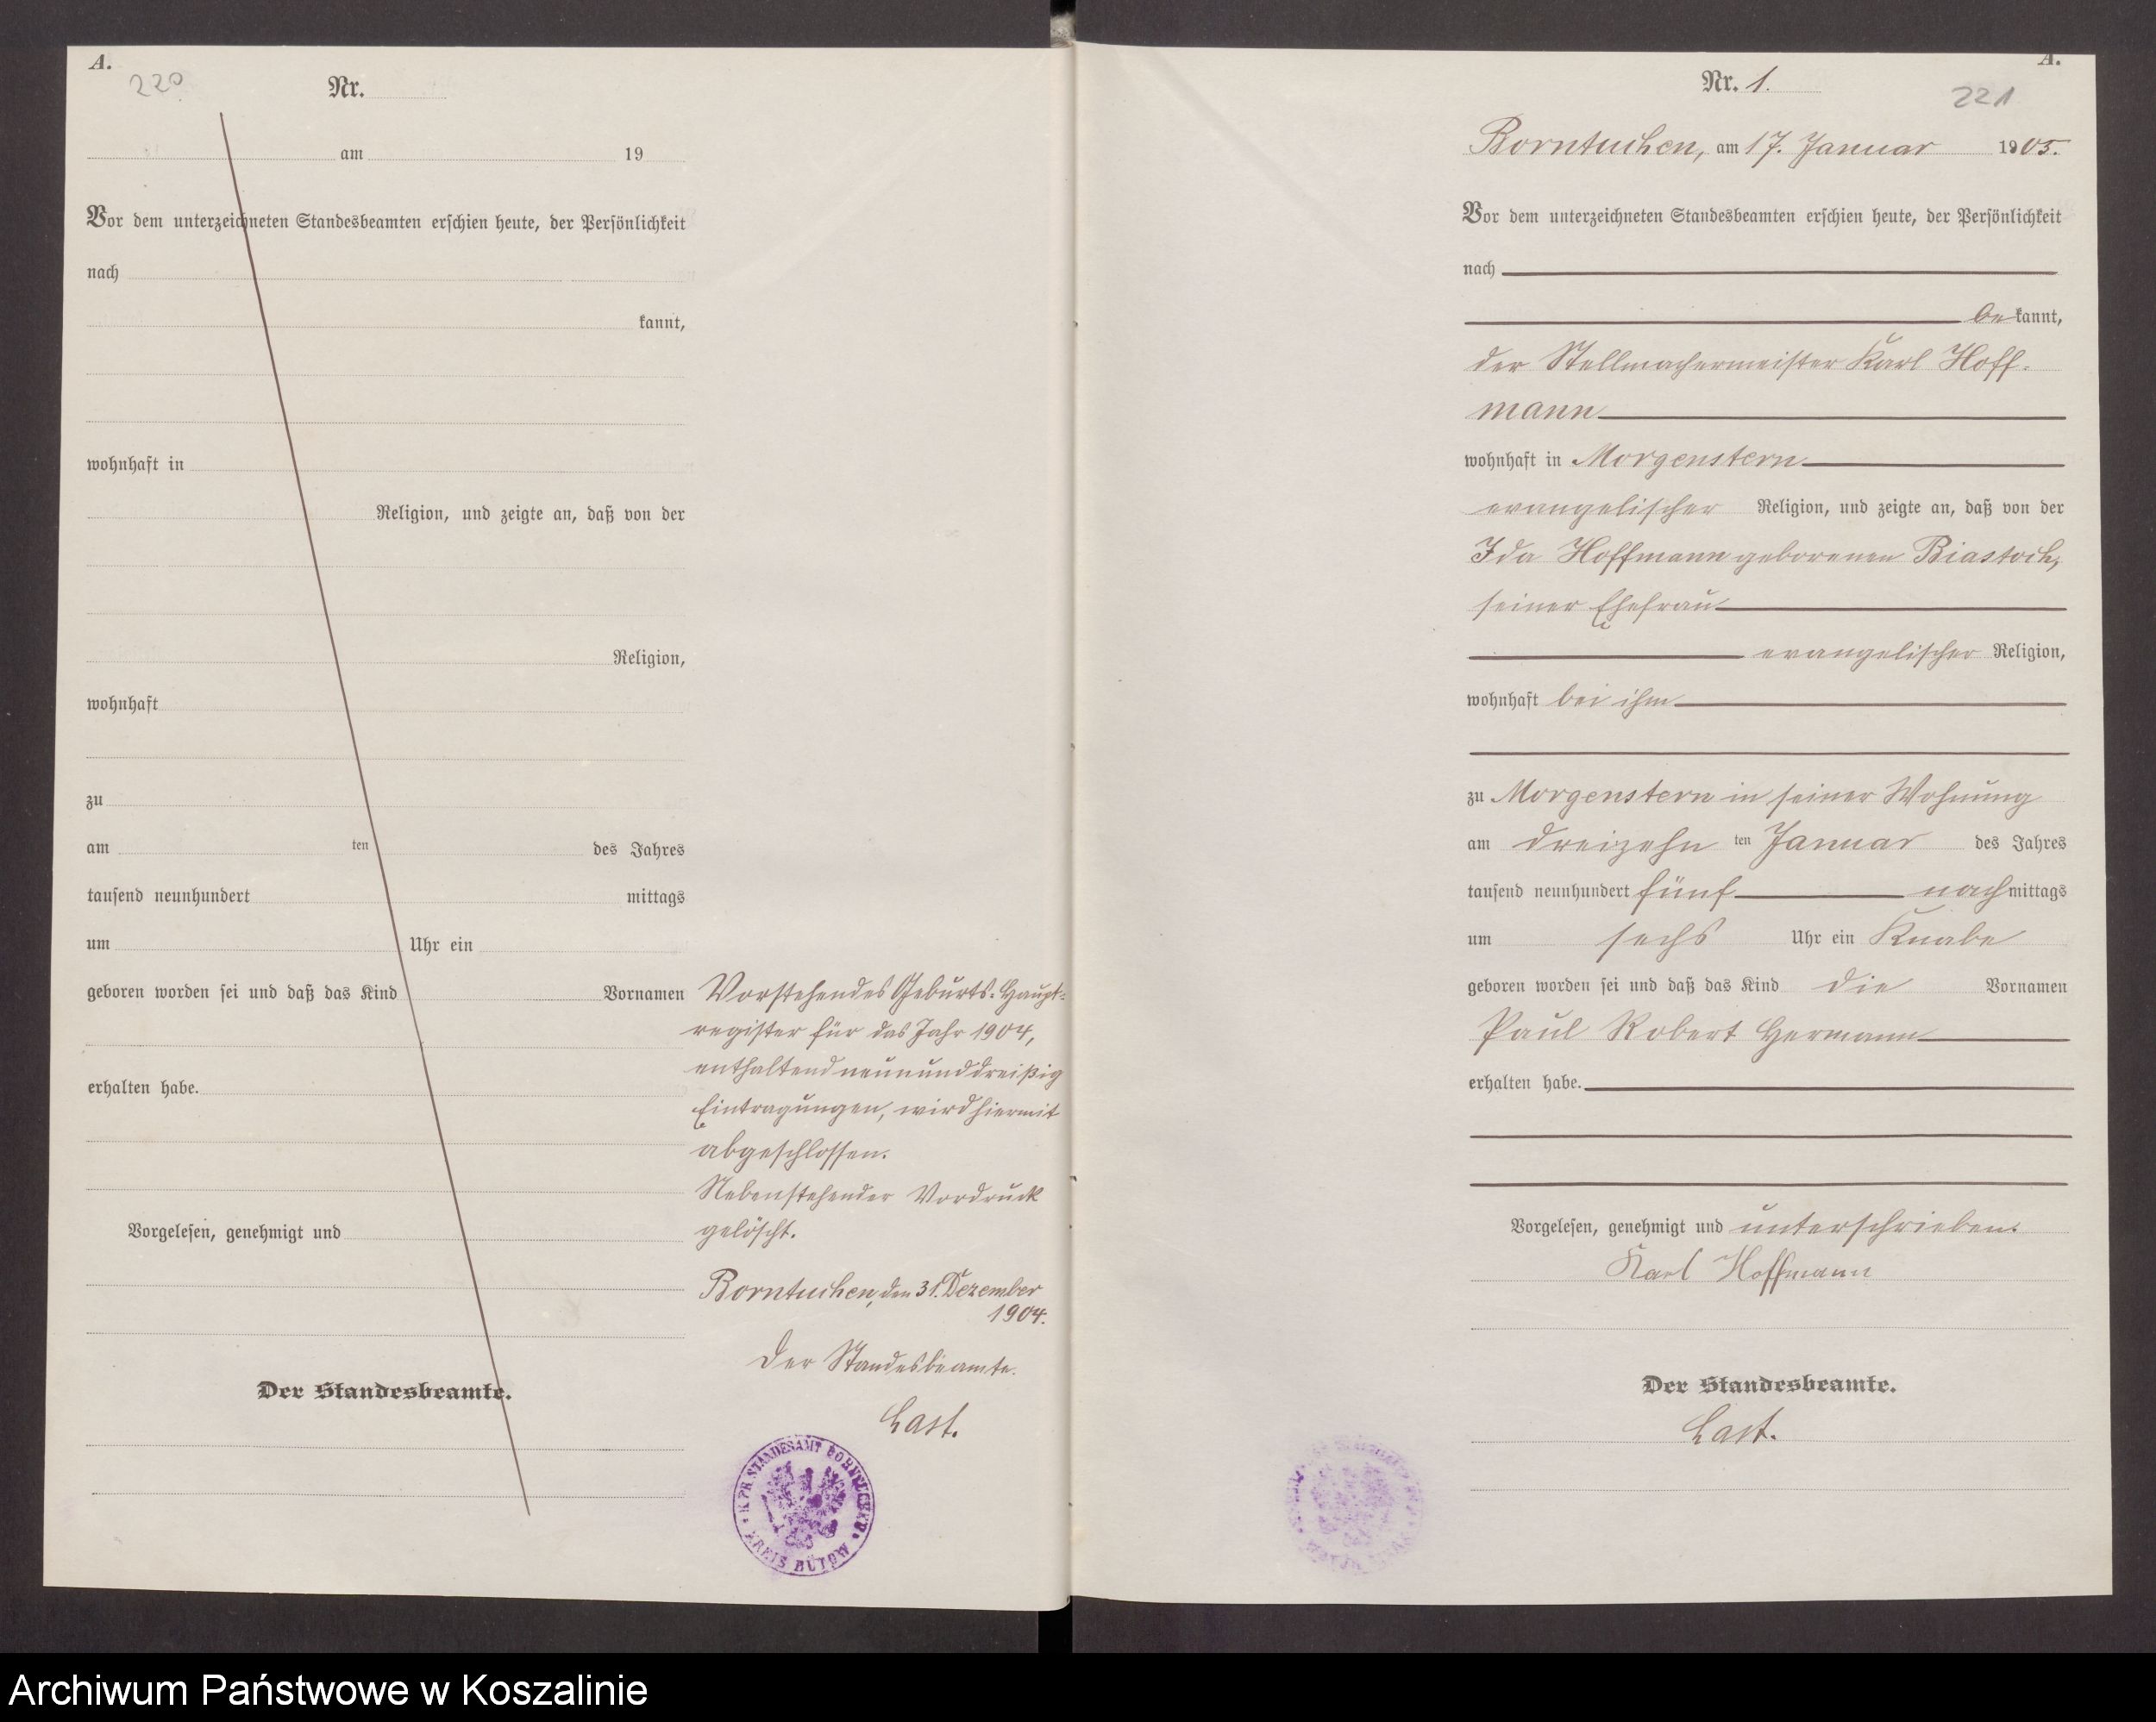 A.
220
Nr.
am 19
Vor dem unterzeichneten Standesbeamten erschien heute, der Persönlichkeit
nach
kannt,
wohnhaft in
Religion, und zeigte an, daß von der
Religion,
wohnhaft
zu
am ten des Jahres
tausend neunhundert mittags
um Uhr ein
geboren worden sei und daß das Kind Vornamen
erhalten habe.
Vorgelesen, genehmigt und
Der Standesbeamte.
Vorstehendes Geburts-Haupt-
register für das Jahr 1904,
enthaltend neununddreißig
Eintragungen, wird hiermit
abgeschlossen.
Nebenstehender Vordruck
gelöscht.
Borntuchen, den 31. Dezember
1904.
Der Standesbeamte.
Last.
K. PR. STANDESAMT BORNTUCHEN
KREIS BÜTOW
A.
221
Nr. 1.
Borntuchen, am 17. Januar 1905.
Vor dem unterzeichneten Standesbeamten erschien heute, der Persönlichkeit
nach
be kannt,
der Stellmachermeister Karl Hoff-
mann
wohnhaft in Morgenstern
evangelischer Religion, und zeigte an, daß von der
Ida Hoffmann geborenen Biastoch,
seiner Ehefrau
evangelischer Religion,
wohnhaft bei ihm
zu Morgenstern in seiner Wohnung
am dreizehn ten Januar des Jahres
tausend neunhundert fünf nach mittags
um sechs Uhr ein Knabe
geboren worden sei und daß das Kind die Vornamen
Paul Robert Hermann
erhalten habe.
Vorgelesen, genehmigt und unterschrieben.
Karl Hoffmann
Der Standesbeamte.
Last.
Archiwum Państwowe w Koszalinie